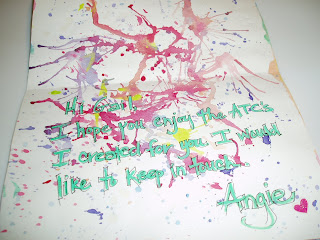 Hi Gail!
I hope you enjoy the ATC's
I created for you I would
like to keep in touch...
Angie